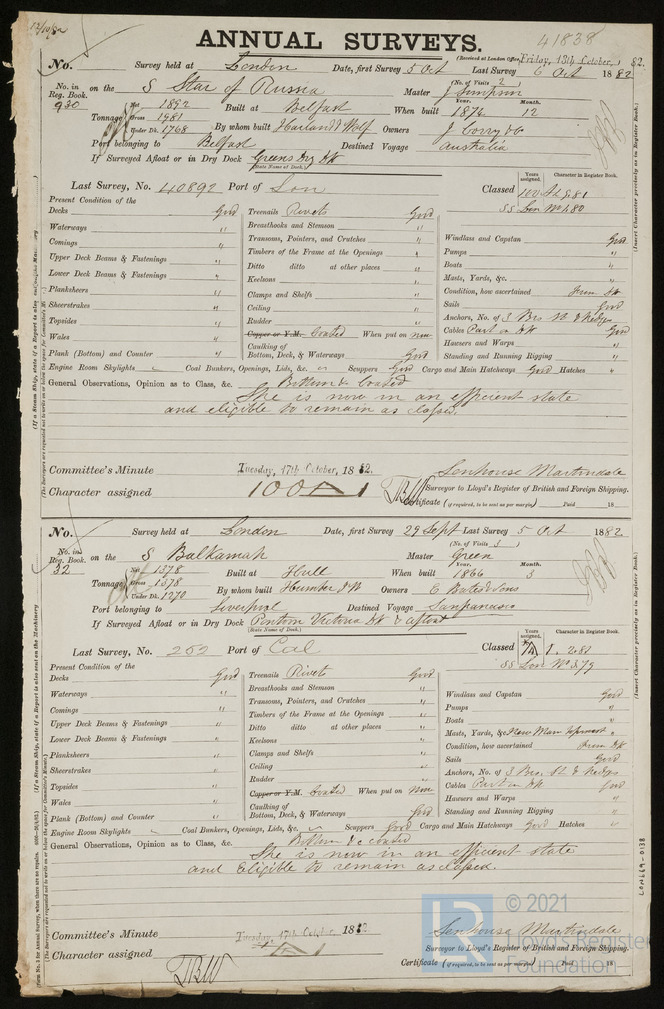 12/10/82
ANNUAL SURVEYS.
41838
(Received at London Office, Friday, 13th October, 82.
No. Survey held at London Date, first Survey 5 Oct Last Survey 6 Oct 1882
(No. of Visits 2)
No. in Reg. Book. on the S Star of Russia Master J Simpson
930 Net 1892 Built at Belfast When built Year. 1874 Month. 12
Tonnage Gross 1981 By whom built Harland & Wolf Owners J Corry & Co
Under Dk. 1768
Port belonging to Belfast Destined Voyage Australia
If Surveyed Afloat or in Dry Dock Greens Dry Dk
(State Name of Dock.)
Last Survey, No. 40892 Port of Lon Classed Years assigned. Character in Register Book.
100 A1 9.81
SS Lon No 1.80
Present Condition of the
Decks Good Treenails Rivets Good
Waterways " Breasthooks and Stemson " Windlass and Capstan Good
Comings " Transoms, Pointers, and Crutches " Pumps "
Upper Deck Beams & Fastenings " Timbers of the Frame at the Openings " Boats "
Lower Deck Beams & Fastenings " Ditto ditto at other places " Masts, Yards, &c. "
Planksheers " Keelsons " Condition, how ascertained From Dk
Sheerstrakes " Clamps and Shelfs " Sails Good
Topsides " Ceiling " Anchors, No. of 3 Brs St & Kedges
Wales " Rudder " Cables Part on Dk Good
Copper or Y.M. Coated When put on now Hawsers and Warps "
Plank (Bottom) and Counter " Caulking of Bottom, Deck, & Waterways Good Standing and Running Rigging "
Engine Room Skylights Coal Bunkers, Openings, Lids, &c. Scuppers Good Cargo and Main Hatchways Good Hatches "
General Observations, Opinion as to Class, &c. Bottom & Coated
She is now in an efficient state
and eligible to remain as classed.
Committee's Minute Tuesday, 17th October, 1882. Senhouse Martindale
Character assigned 100 A 1 Surveyor to Lloyd's Register of British and Foreign Shipping.
Certificate (if required, to be sent as per margin) Paid 18
No. Survey held at London Date, first Survey 29 Sept Last Survey 5 Oct 1882.
(No. of Visits 3)
No. in Reg. Book. on the S Balkamah Master Green
32 Net 1378 Built at Hull When built Year. 1866 Month. 3
Tonnage Gross 1378 By whom built Humber I W Owners E Bates & Sons
Under Dk. 1270
Port belonging to Liverpool Destined Voyage Sanfrancisco
If Surveyed Afloat or in Dry Dock Pontoon Victoria Dk & afloat
(State Name of Dock.)
Last Survey, No. 262 Port of Cal Classed Years assigned. Character in Register Book.
A 1. 2.81
SS Lon No 3.79
Present Condition of the
Decks Good Treenails Rivets Good
Waterways " Breasthooks and Stemson " Windlass and Capstan Good
Comings " Transoms, Pointers, and Crutches " Pumps "
Upper Deck Beams & Fastenings " Timbers of the Frame at the Openings " Boats "
Lower Deck Beams & Fastenings " Ditto ditto at other places " Masts, Yards, &c. New Main Topmast "
Planksheers " Keelsons " Condition, how ascertained From Dk
Sheerstrakes " Clamps and Shelfs " Sails Good
Topsides " Ceiling " Anchors, No. of 3 Brs. St. & Kedges
Wales " Rudder " Cables Part on Dk Good
Copper or Y.M. Coated When put on Now Hawsers and Warps "
Plank (Bottom) and Counter " Caulking of Bottom, Deck, & Waterways Good Standing and Running Rigging "
Engine Room Skylights Coal Bunkers, Openings, Lids, &c. Scuppers Good Cargo and Main Hatchways Good Hatches "
General Observations, Opinion as to Class, &c. Bottom &c coated
She is now in an efficient state
and Eligible to remain as classed.
Committee's Minute Tuesday, 17th October, 1882 Senhouse Martindale
Character assigned A 1 Surveyor to Lloyd's Register of British and Foreign Shipping.
Certificate (if required, to be sent as per margin) Paid 18
(Insert Character precisely as in Register Book.)
(Insert Character precisely as in Register Book.)
LON669-0138
© 2021
Lloyd's Register
Foundation